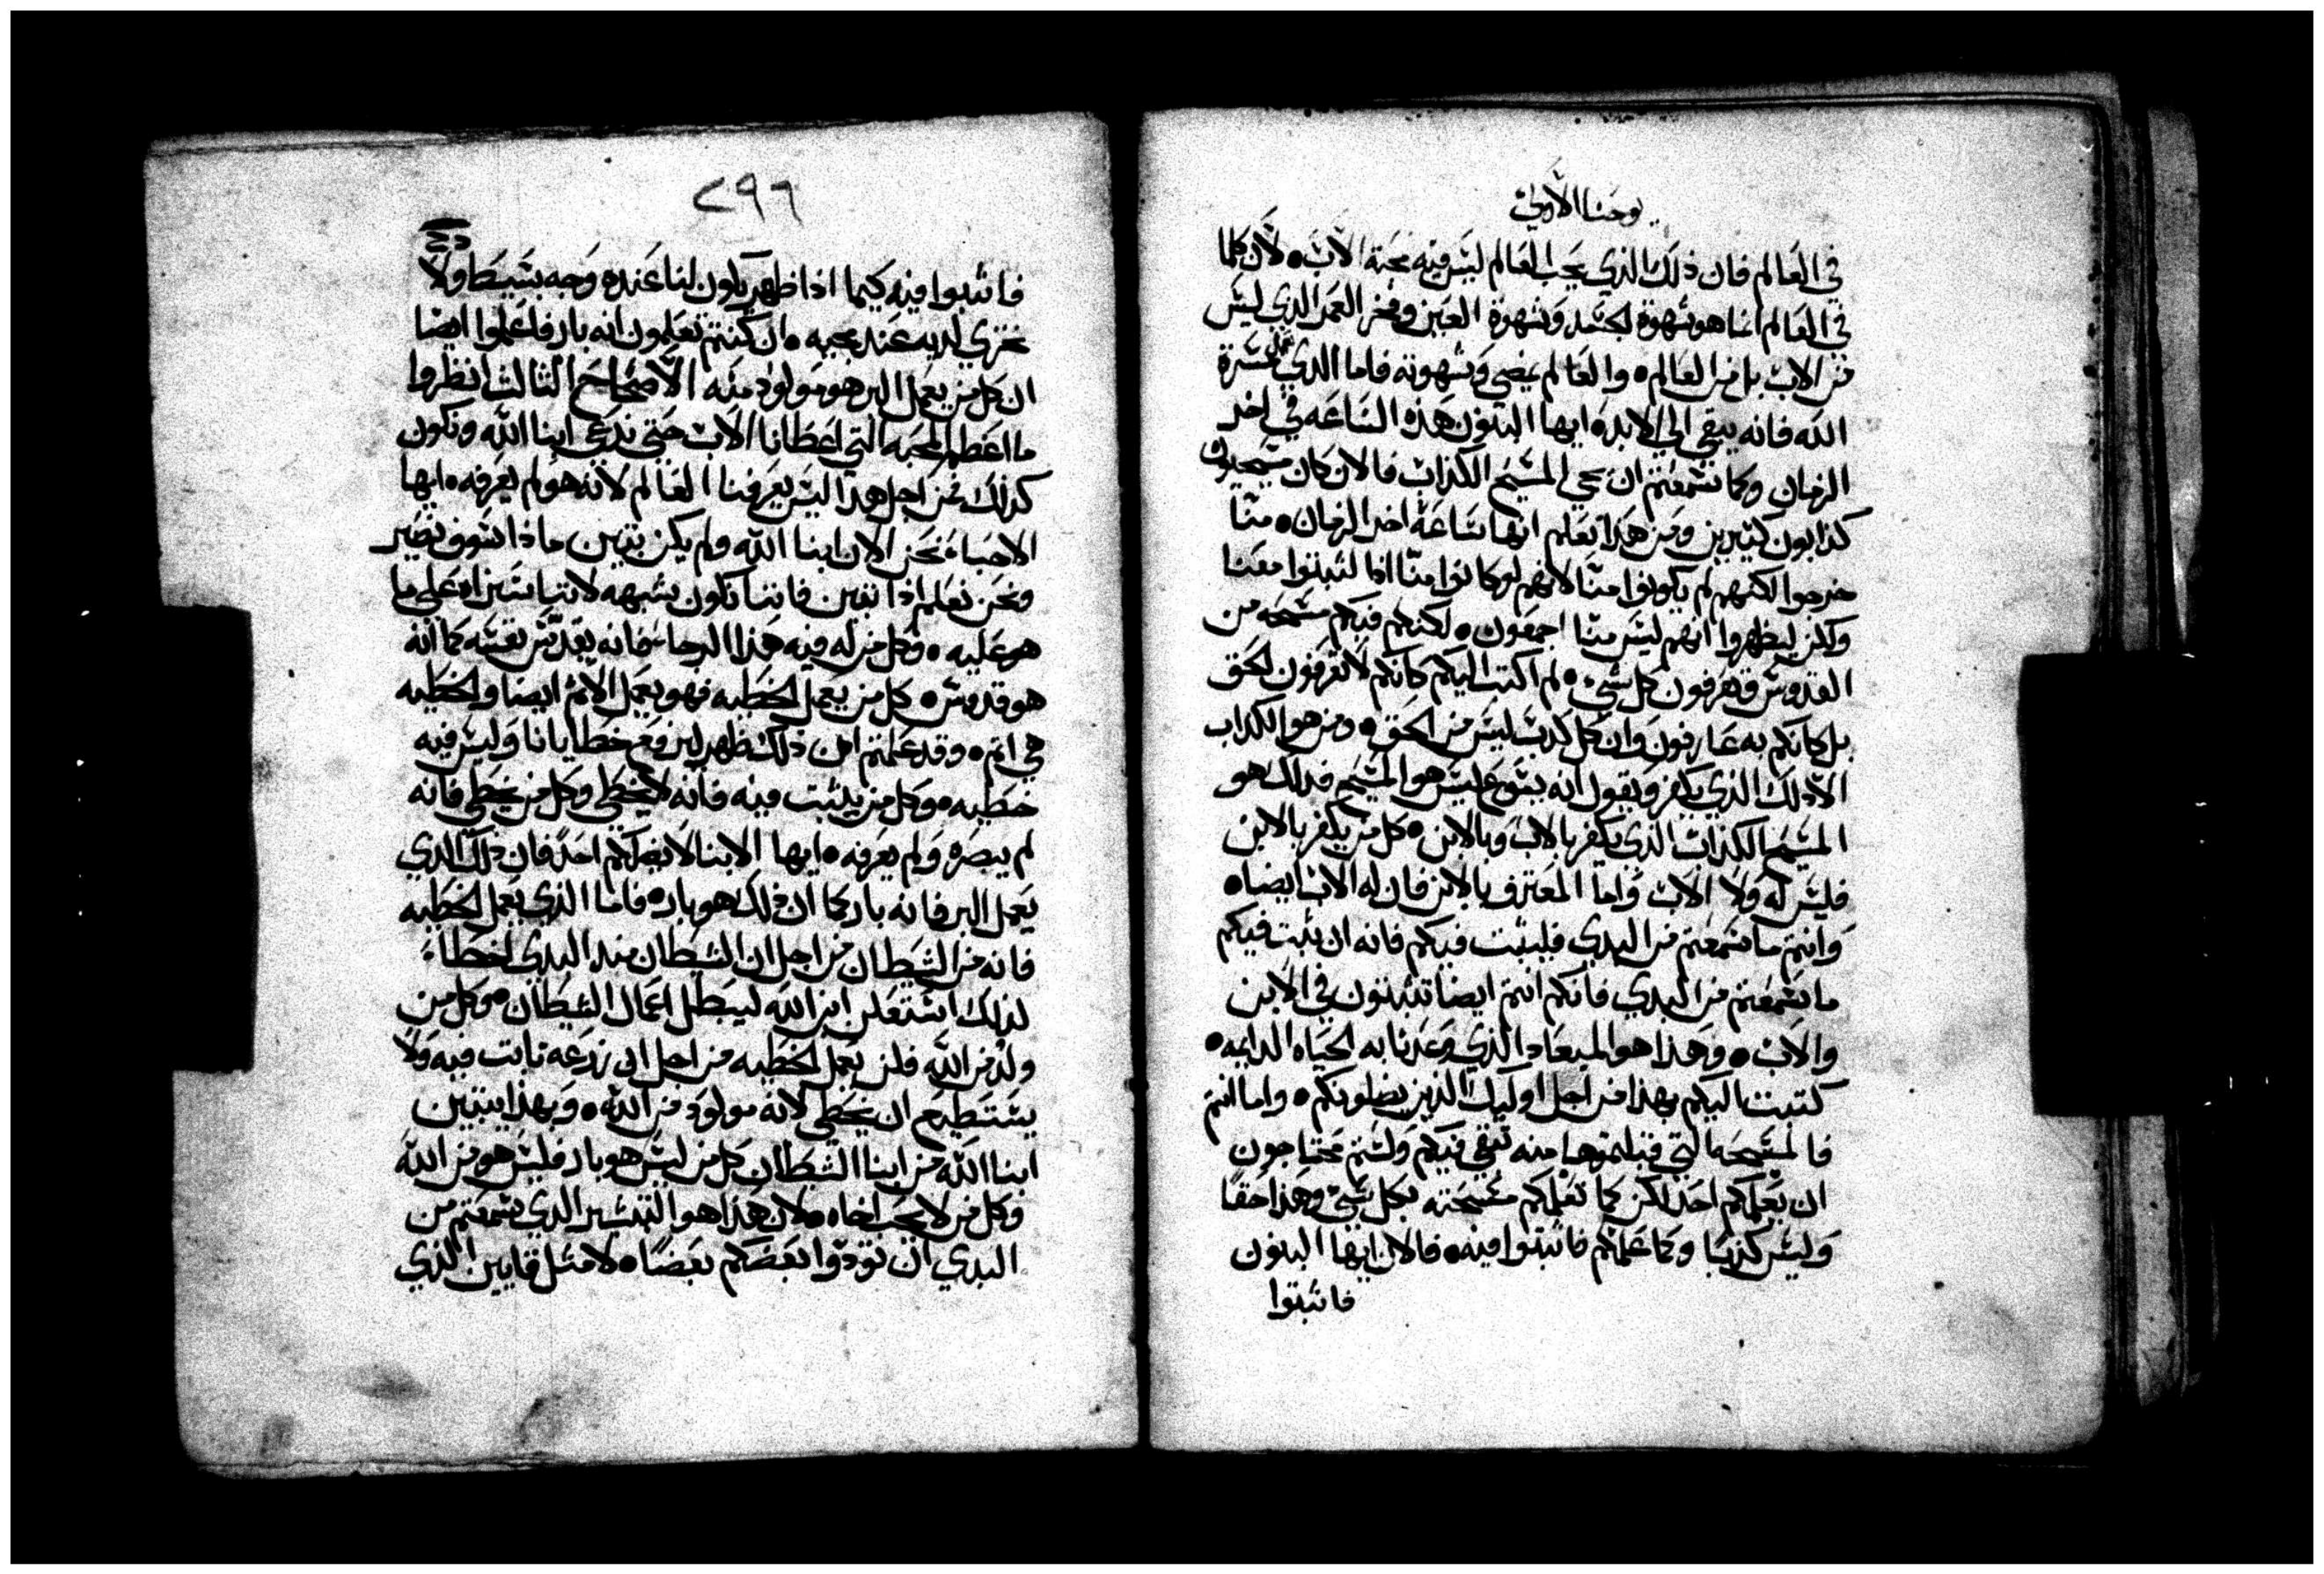 يوحنا الاولي
في العالم فان ذلك الذي يحب العالم ليس فيه محبة الاب٠ لان كلما
في العالم انما هو شهوة الجسد وشهوة العين وفخر العمر الذي ليس
من الاب بل من العالم٠ والعالم يمضي وشهوته فاما الذي يعمل مسرة
الله فانه يبقى الي الابد٠ ايها البنون هذه الساعه في اخر
الزمان وكما سمعتم ان يجي المسيح الكذاب فالان كان مسيحيون
كذابون كثيرين ومن هذا نعلم انها ساعة اخر الزمان٠ منا
خرجوا لكنهم لم يكونوا منا لانهم لو كانوا منا اذا لثبتوا معنا
ولكن ليظهروا انهم ليس منا اجمعون٠ لكنكم فيكم مسحه من
القدوس وتعرفون كل شيء٠ لم اكتب اليكم كانكم لا تعرفون الحق
بل كانكم به عارفون وان كل كدب ليس من الحق٠ ومن هو الكداب
الا ذلك الذي يكفر ويقول انه يسوع ليس هو المسيح فدلك هو
المسيح الكذاب الذي يكفر بالاب وبالابن٠ كل من يكفر بالابن
فليس له ولا الاب واما المعترف بالابن فان له الاب ايضا٠
وانتم ما سمعتم من البدي فليثبت فيكم فانه ان يثبت فيكم
ما سمعتم من البدي فانكم انتم ايضا تثبتون في الابن
والاب٠ وهذا هو الميعاد الذي وعدنا به الحياه الدايمه٠
كتبت اليكم بهذا من اجل اوليك الذين يضلونكم٠ واما انتم
فالمسحه التي قبلتموها منه تبقى فيكم ولستم محتاجون
ان يعلمكم احد لكن كما تعلمكم مسحته بكل شي وهذا حقا
وليس كذبا وكما علمكم فاثبتوا فيه٠ فالان ايها البنون
فاثبتوا
٢٩٦
فاثبتوا فيه كيما اذا ظهر يكون لنا عنده وجه بسيط ولا
نخزي لديه عند مجيه٠ ان كنتم تعلمون انه بار فاعلموا ايضا
ان كل من يعمل البر هو مولود منه الاصحاح الثالث انظروا
ما اعظم المحبه التي اعطانا الاب حتى ندعى ابنا الله ونكون
كذلك من اجل هدا ليس يعرفنا العالم لانه هو لم يعرفه٠ ايها
الاحباء نحن الان ابنا الله ولم يكن يتبين ماذا سوف نصير
ونحن نعلم اذا تبين فاننا نكون بشبهه لاننا سنراه على ما
هو عليه٠ وكل من له فيه هذا الرجاء فانه يقدس نفسه كما انه
هو قدوس٠ كل من يعمل الخطيه فهو يعمل الاثم ايضا والخطيه
هي اثم٠ وقد علمتم ان ذلك ظهر ليرفع خطايانا وليس فيه
خطيه٠ وكل من يثبت فيه فانه لا يخطي وكل من يخطي فانه
لم يبصره ولم يعرفه٠ ايها الابنا لا يضلكم احد فان ذلك الدي
يعمل البر فانه بار كما ان ذلك هو بار٠ فاما الذي يعمل الخطيه
فانه من الشيطان من اجل ان الشيطان منذ البدي اخطاء
لذلك استعلن ابن الله ليبطل اعمال الشيطان٠ وكل من
ولد من الله فلن يعمل الخطيه من اجل ان زرعه ثابت فيه ولا
يستطيع ان يخطي لانه مولود من الله٠ وبهذا يتبين
ابنا الله من ابنا الشيطان كل من ليس هو بار فليس هو من الله
وكل من لا يحب اخاه٠ لان هذا هو التبشير الدي سمعتم من
البدي ان تودوا بعضكم بعضا٠ لا مثل قايين الذي